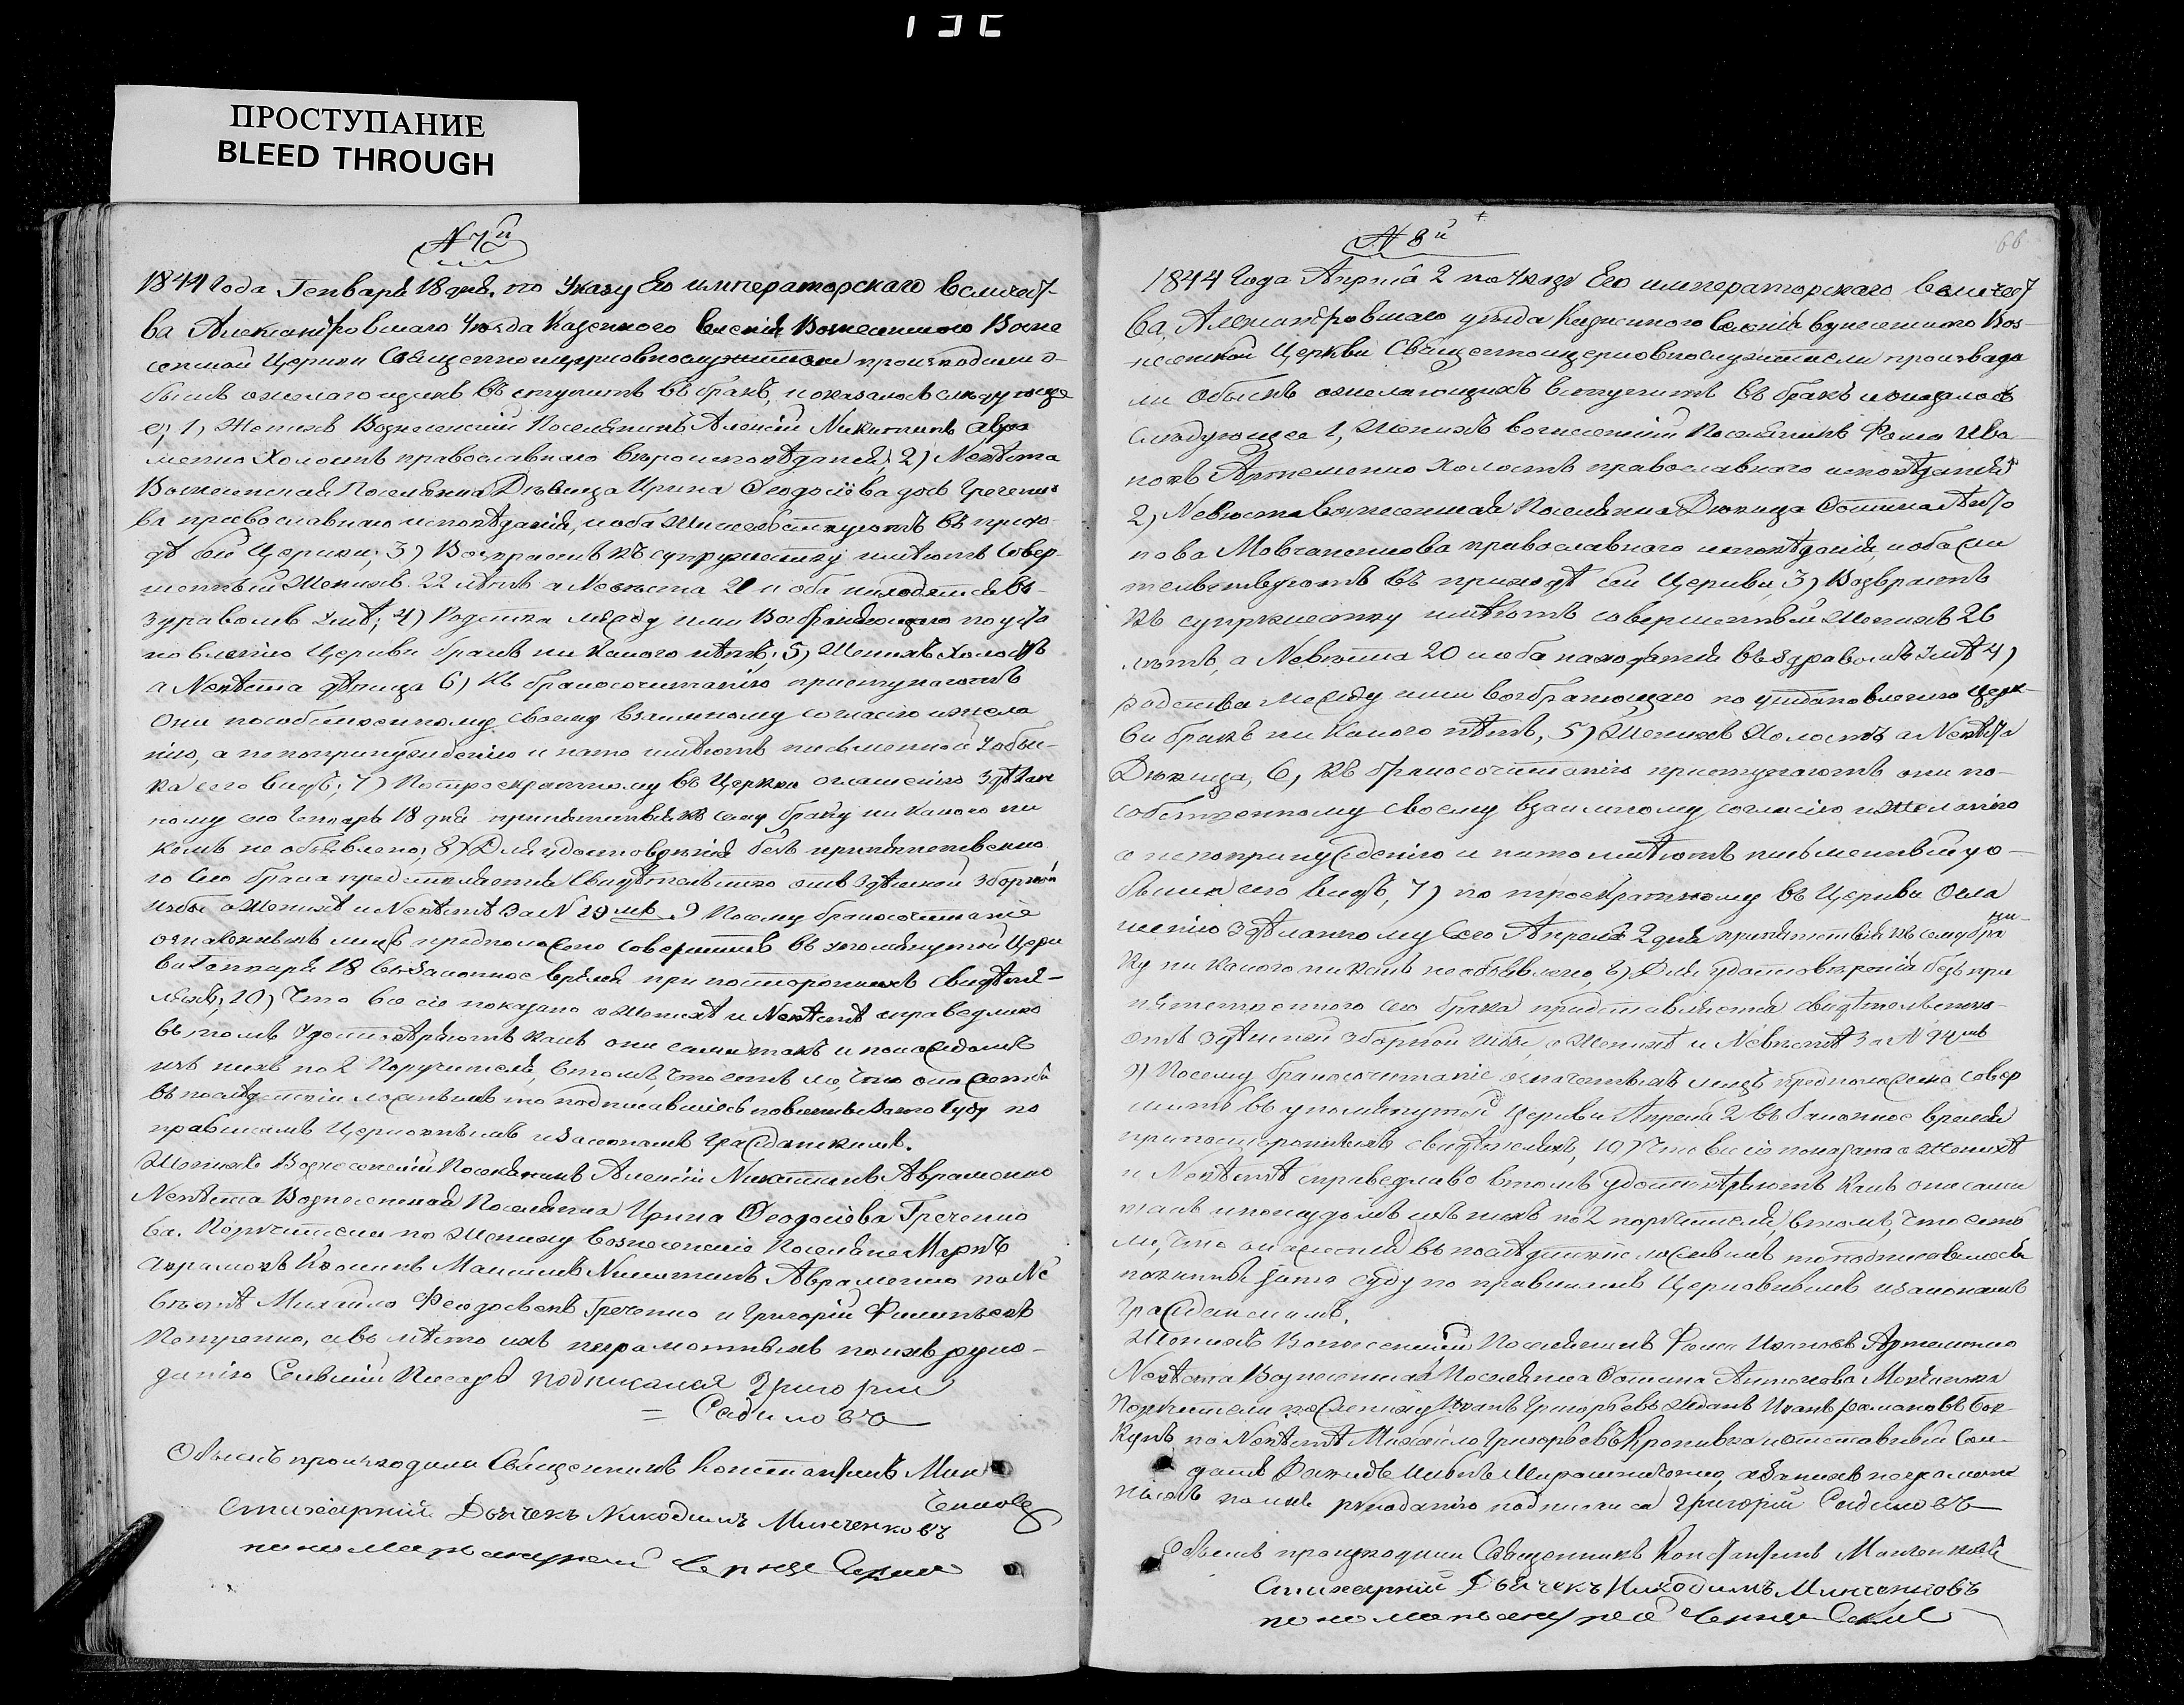 ПРОСТУПАНИЕ
BLEED THROUGH
N 7й
1844 года Генваря 18 дня, по Указу Его императорского величест-
ва Александровскаго Уезда Казенного селения Вознесенского Возне
сенской Церкви Священноцерковнослужители производили о-
быск желающих вступить в брак, и оказалось следующе
е; 1) Жених Вознесенский Поселянин Алексий Никитин Авра
менко Холост православнаго вероисповедания; 2) Невѣста
Вознесенская Поселянка Дѣвица Ирина Феодосіева дочь Греченко
ва православнаго исповѣданія, и оба жительствуютъ въ прихо-
дѣ сей Церкви; 3) Возрастъ къ супружеству имѣютъ совер-
шенный Женихъ 22 лѣтъ а Невѣста 21 и оба находятся въ
здравомъ умѣ; 4) Родства между ими Возбраняющаго по уста
новленію Церкви бракъ ни какого нѣтъ; 5) Женихъ Холостъ
а Невѣста дѣвица 6) Къ бракосочитанію приступаютъ
Они по собственному своему взаимному согласію и жела
нію, а непопринужденію и нато имѣютъ письменной
видъ; 7) По троекратному въ Церкви оглашенію здѣлан
ному сего Генваря 18 дня припятствія къ сему браку ни какого ни
кемъ не объявлено; 8) Для удостовѣренія безъ припятственно
го сего брака представляется Свидѣтельство отъ здѣшной зборной
избы о Женихѣ и Невѣстѣ За N 19мъ. 9) Посему бракосочитаніе
означенныхъ лицъ предположено совершить въ упомянутой Церк
ви Генваря 18 въ законное время при постороннихъ свидѣте-
ляхъ; 10) Что все сіе показано о Женихѣ и Невѣстѣ справедливо
въ томъ удостовѣряютъ какъ они сами такъ и по каждомъ
изъ нихъ по 2 Поручителя, втомъ, что естьли, что окажется
въ послѣдствіи ложнымъ то подписавшіесь повинны зато Суду по
правиламъ Церковнымъ и законамъ Гражданскимъ.
Женихъ Вознесенскій Поселянинъ Алексій Никитинъ Авраменко
Невѣста Вознесенская Поселянка Ирина Феодосіева Греченко
ва. Поручители по Жениху вознесенские Поселяне Маркъ
Максимъ Никитинъ Авраменко по Не
вѣстѣ Михайло Феодосіевъ Греченко и Григорій
а вмѣсто ихъ неграмотныхъ по ихъ руко-
данію Сельскій Писарь подписался Григорий
= Садиловъ
Обыскъ производили Священникъ Константинъ Мин
ченковъ
Стихарный Дьячекъ Никодимъ Минченковъ
N 8й
66
1844 Года Апрѣля 2 по Указу Его императорскаго величест
ва, Александровскаго уѣзда Казенного селенія вознесенского Воз-
несенской Церкви Священноцерковнослужители произвади
ли обыскъ желающихъ вступить въ бракъ и оказалось
слѣдующее 1, Женихъ вознесенскій Поселянинъ Фома Ива
новъ Артеменко Холостъ православного исповѣданія
2) Невѣста Вознесенская Поселянка Дѣвица
нова православного исповѣданія, и оба жи
тельствуютъ въ приходѣ сей Церкви, 3) Возврастъ
къ супружеству имѣютъ совершенный Женихъ 26
лѣтъ, а Невѣста 20 и оба находятся въ здравомъ умѣ 4)
родства между ими возбраняющаго по установленію церк-
ви бракъ ни какого нѣтъ, 5) Женихъ Холостъ а Невѣста
Дѣвица, 6, Къ бракосочитанію приступаютъ они по-
собственному своему взаимному согласію и желанію
а непопринужденію и нато имѣютъ письменный
видъ, 7) по троекратному въ Церкви Огла
шенію здѣланному сего Апреля 2 дня припятствія къ сему бра
ку ни какого ни кемъ не объявлено, 8) Для удостовѣренія безъ при
пятственного сего брака представляется свидѣтельство
отъ здѣшней зборной избы, о Женихѣ и Невѣстѣ За N 94мъ
9) Посему бракосочитаніе означенныхъ лицъ предположено совер
шить въ упомянутой Церкви Апреля 2 въ законное время
при постороннихъ свидѣтеляхъ, 10) Что все сіе показано о Женихѣ
и Невѣстѣ справедливо втомъ удостовѣряютъ какъ они сами
такъ и по каждомъ изъ нихъ по 2 поручителя, втомъ, что есть
ли, что окажется въ послѣдствіи ложнымъ то подписавшіесь
повинны зато суду по правиламъ Церковнымъ и законамъ
гражданскимъ.
Женихъ Вознесенскій Поселянинъ Фома Ивановъ Артеменко
Невѣста Вознесенская Поселянка
Поручители по Жениху Иванъ Григорьевъ Жданъ Иванъ Романовъ
по Невѣстѣ Михайло Григорьевъ Кропивка и отставный Сол-
датъ Мирошниченко,
по ихъ рукоданію подписался Григорий Садиловъ
Обыскъ производили Священникъ Константинъ Минченковъ
Стихарный Дьячекъ Никодимъ Минченковъ